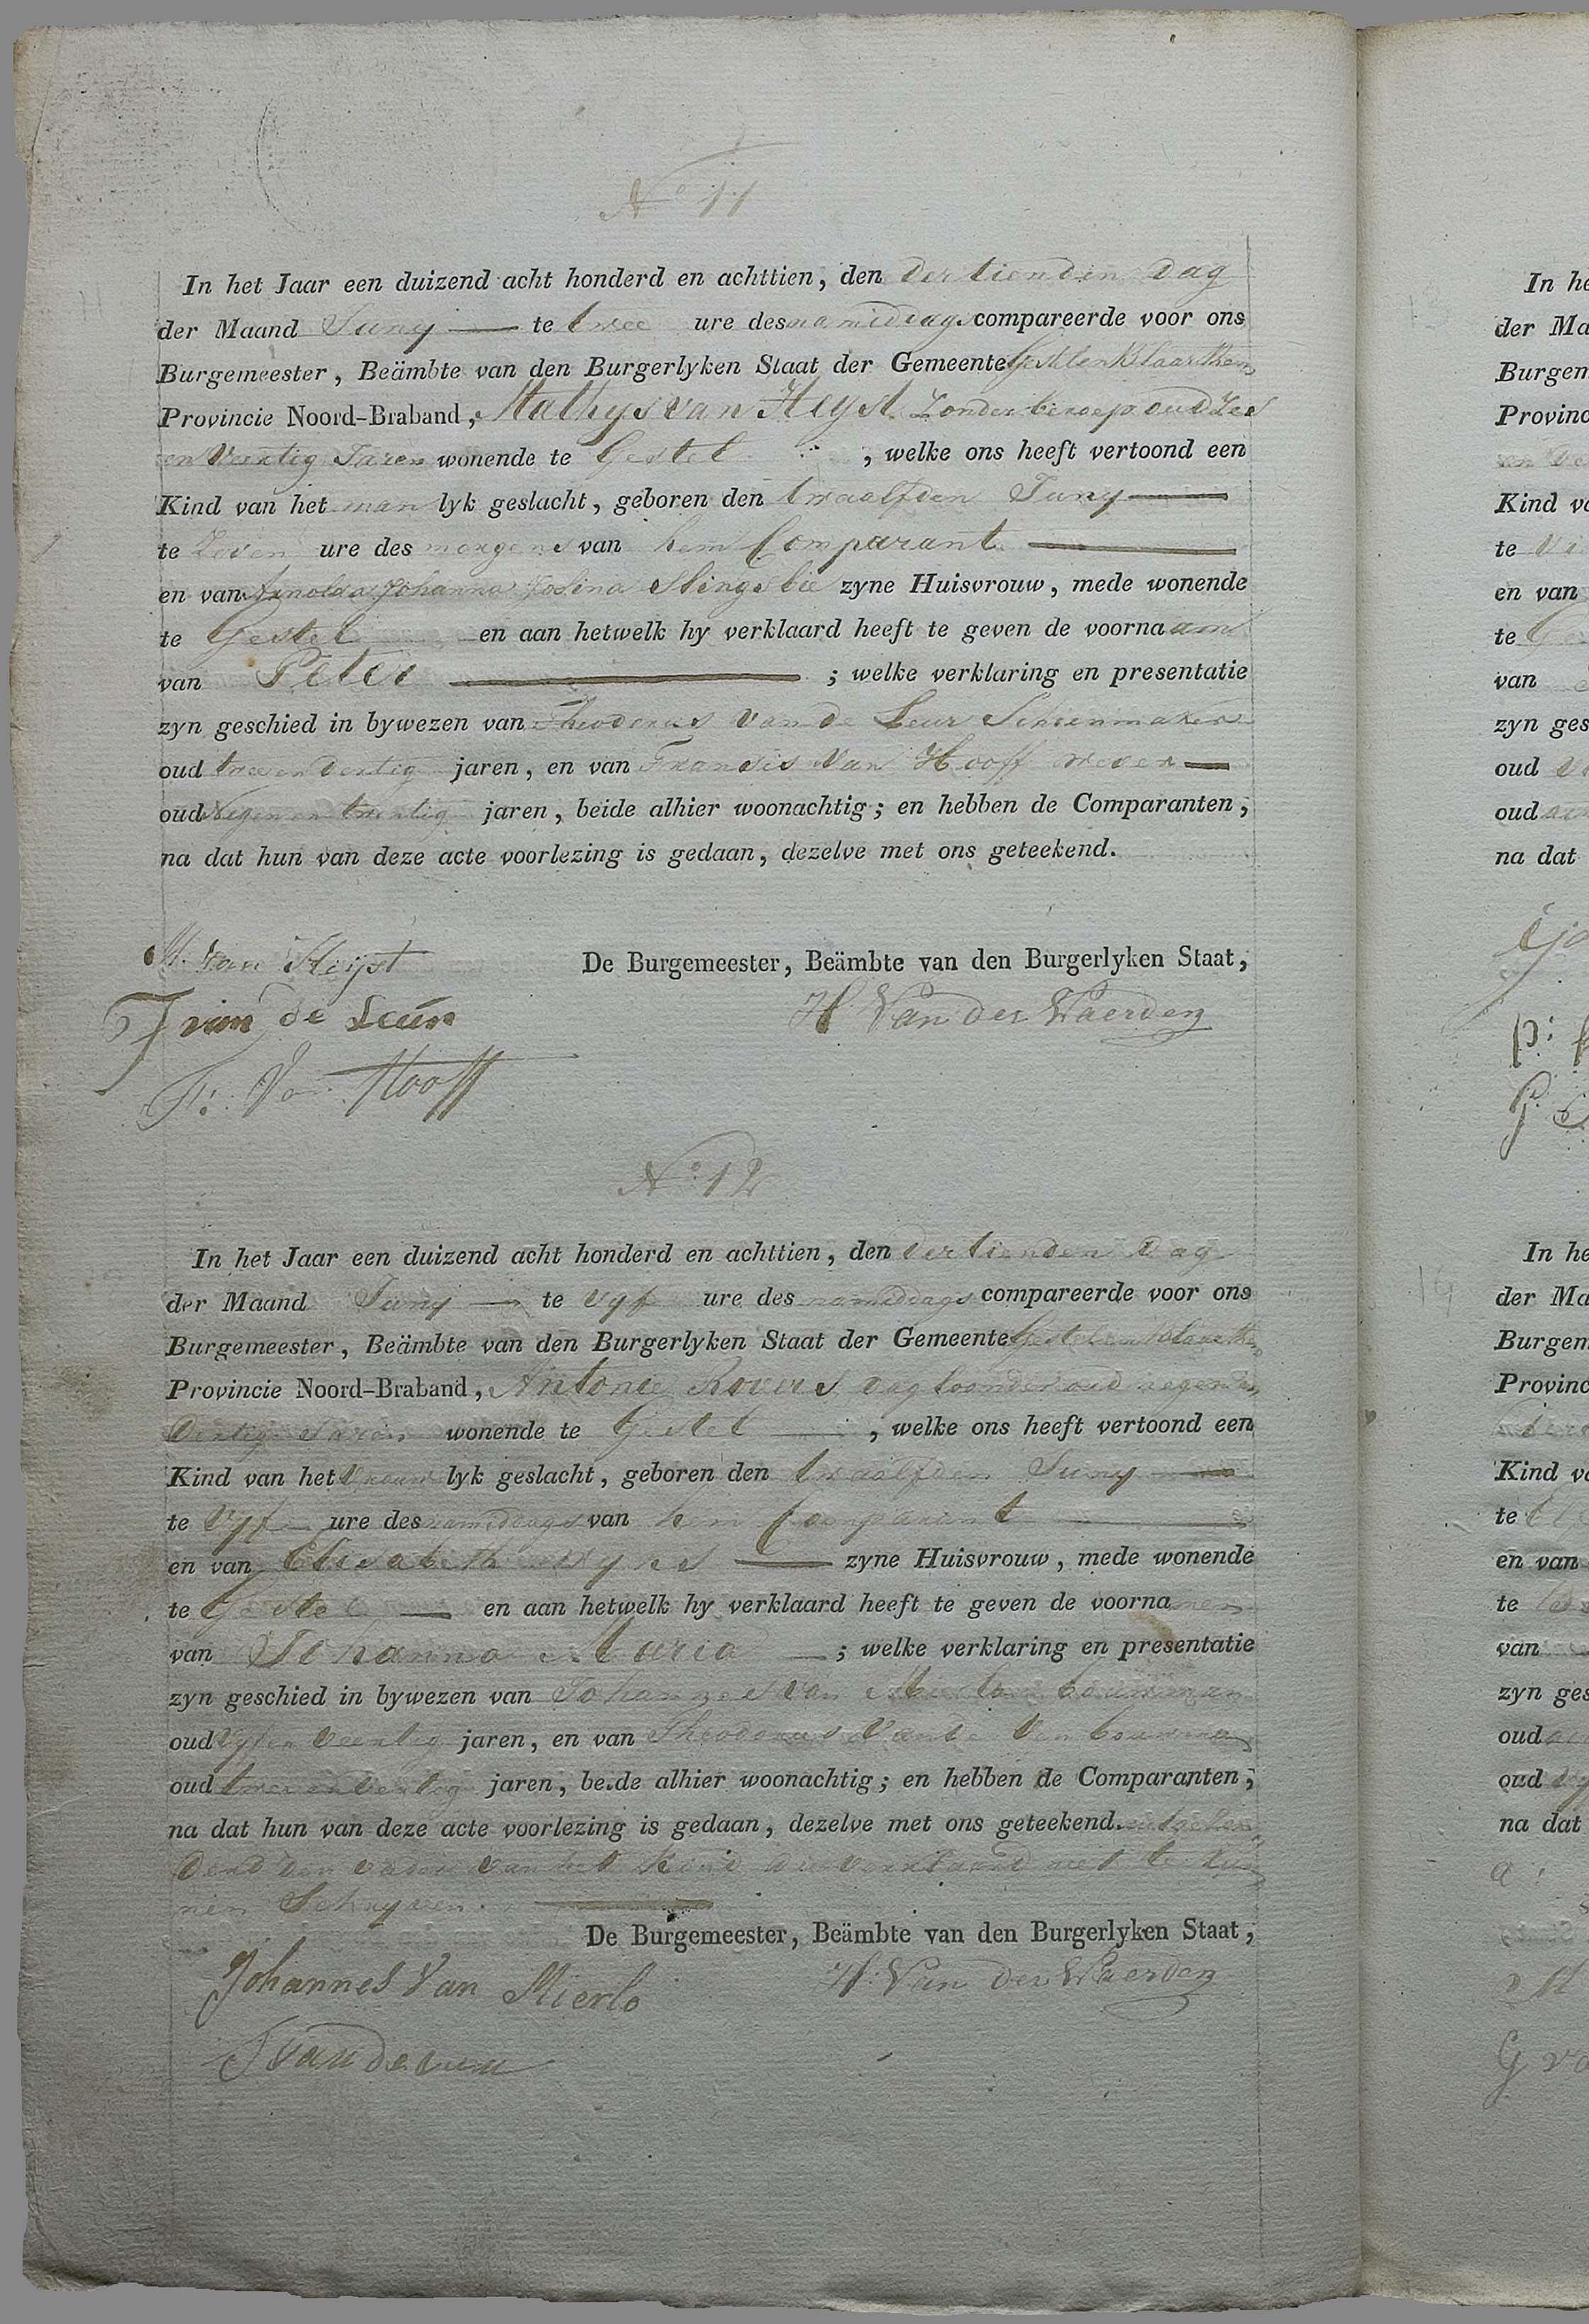 N° 11
In het Jaar een duizend acht honderd en achttien, den dertienden dag
der Maand Juny — te twee ure des namiddags compareerde voor ons
Burgemeester, Beämbte van den Burgerlyken Staat der Gemeente
Provincie Noord-Braband, Mathys van Heyst Zonder beroep oud Zes
en Veertig Jaren wonende te Gestel, welke ons heeft vertoond een
Kind van het man lyk geslacht, geboren den twaalfden Juny —
te Zeven ure des morgens van hem Comparant —
en van Arnolda Johanna Josina Slingsbie zyne Huisvrouw, mede wonende
te Gestel en aan hetwelk hy verklaard heeft te geven de voornaam
van Peter — ; welke verklaring en presentatie
zyn geschied in bywezen van Theodorus Van de Leur Schoenmaker
oud twee en dertig jaren, en van Francis Van Hooff wever —
oud Negen en twentig jaren, beide alhier woonachtig; en hebben de Comparanten,
na dat hun van deze acte voorlezing is gedaan, dezelve met ons geteekend.
M. Van Heijst
De Burgemeester, Beämbte van den Burgerlyken Staat,
T van de Leur
H Van der Waerden
F: Van Hooff
N° 12
In het Jaar een duizend acht honderd en achttien, den dertienden dag
der Maand Juny — te vyf ure des namiddags compareerde voor ons
Burgemeester, Beämbte van den Burgerlyken Staat der Gemeente
Provincie Noord-Braband, Antonie Rovers dagloonder oud negen en
Jaren wonende te Gestel —, welke ons heeft vertoond een
Kind van het vrouw lyk geslacht, geboren den twaalfden Juny —
te Vyf ure des namiddags van hem Comparant —
en van Elisabeth Wynes — zyne Huisvrouw, mede wonende
te Gestel — en aan hetwelk hy verklaard heeft te geven de voornamen
van Johanna Maria — ; welke verklaring en presentatie
zyn geschied in bywezen van Johannes Van Mierlo bouwman
oud Vyf en Veertig jaren, en van Theodorus Van de Ven bouwman
oud twee en jaren, beide alhier woonachtig; en hebben de Comparanten,
na dat hun van deze acte voorlezing is gedaan, dezelve met ons geteekend.
den vader van het Kind die verklaard niet te kun
nen Schryven. —
De Burgemeester, Beämbte van den Burgerlyken Staat,
Johannes Van Mierlo
H: Van der Waerden
In he
der Ma
Burgem
Provinc
Kind va
te
en van
te
van
zyn ges
oud
oud
na dat
In he
der Ma
Burgem
Provinc
Kind va
te
en van
te
van
zyn ges
oud
oud
na dat